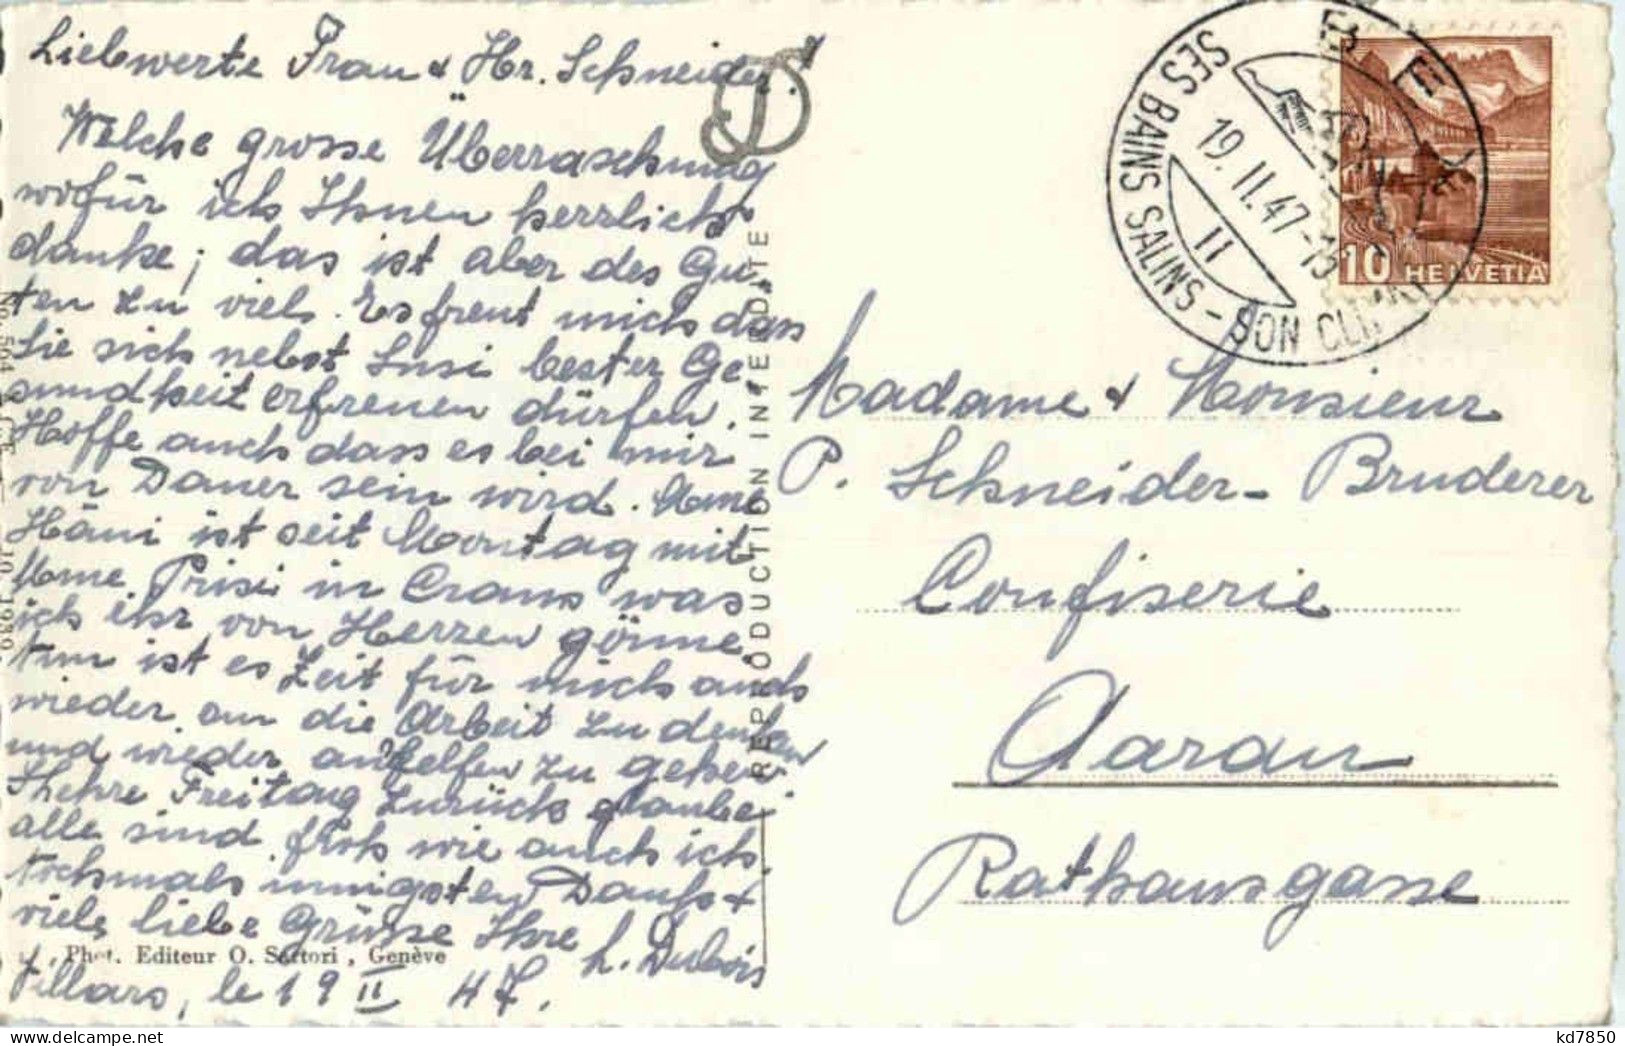 Liebwerte Frau & Hr. Schneider!
Welche grosse Überraschung
wofür ich Ihnen herzlich
danke; das ist aber des Gu-
ten zu viel. Es freut mich dass
Sie sich nebst Susi bester Ge-
sundheit erfreuen dürfen.
Hoffe auch dass es bei mir
von Dauer sein wird. Mme
Häni ist seit Montag mit
Mme Prisi in Crans was
ich ihr von Herzen gönne.
Nun ist es Zeit für mich auch
wieder an die Arbeit zu denken
und wieder aufhelfen zu gehen.
Kehre Freitag zurück glaube
alle sind froh wie auch ich.
Nochmals innigsten Dank +
viele liebe Grüsse Ihre
L. Dubois
Phot. Editeur O. Sartori, Genève
Villars, le 19 II 47.
REPRODUCTION INTERDITE
SES BAINS SALINS - SON CLIMAT
19. II. 47 - 15
II
BEX
10 HELVETIA
Madame & Monsieur
P. Schneider-Bruderer
Confiserie
Aarau
Rathausgasse
kd7850